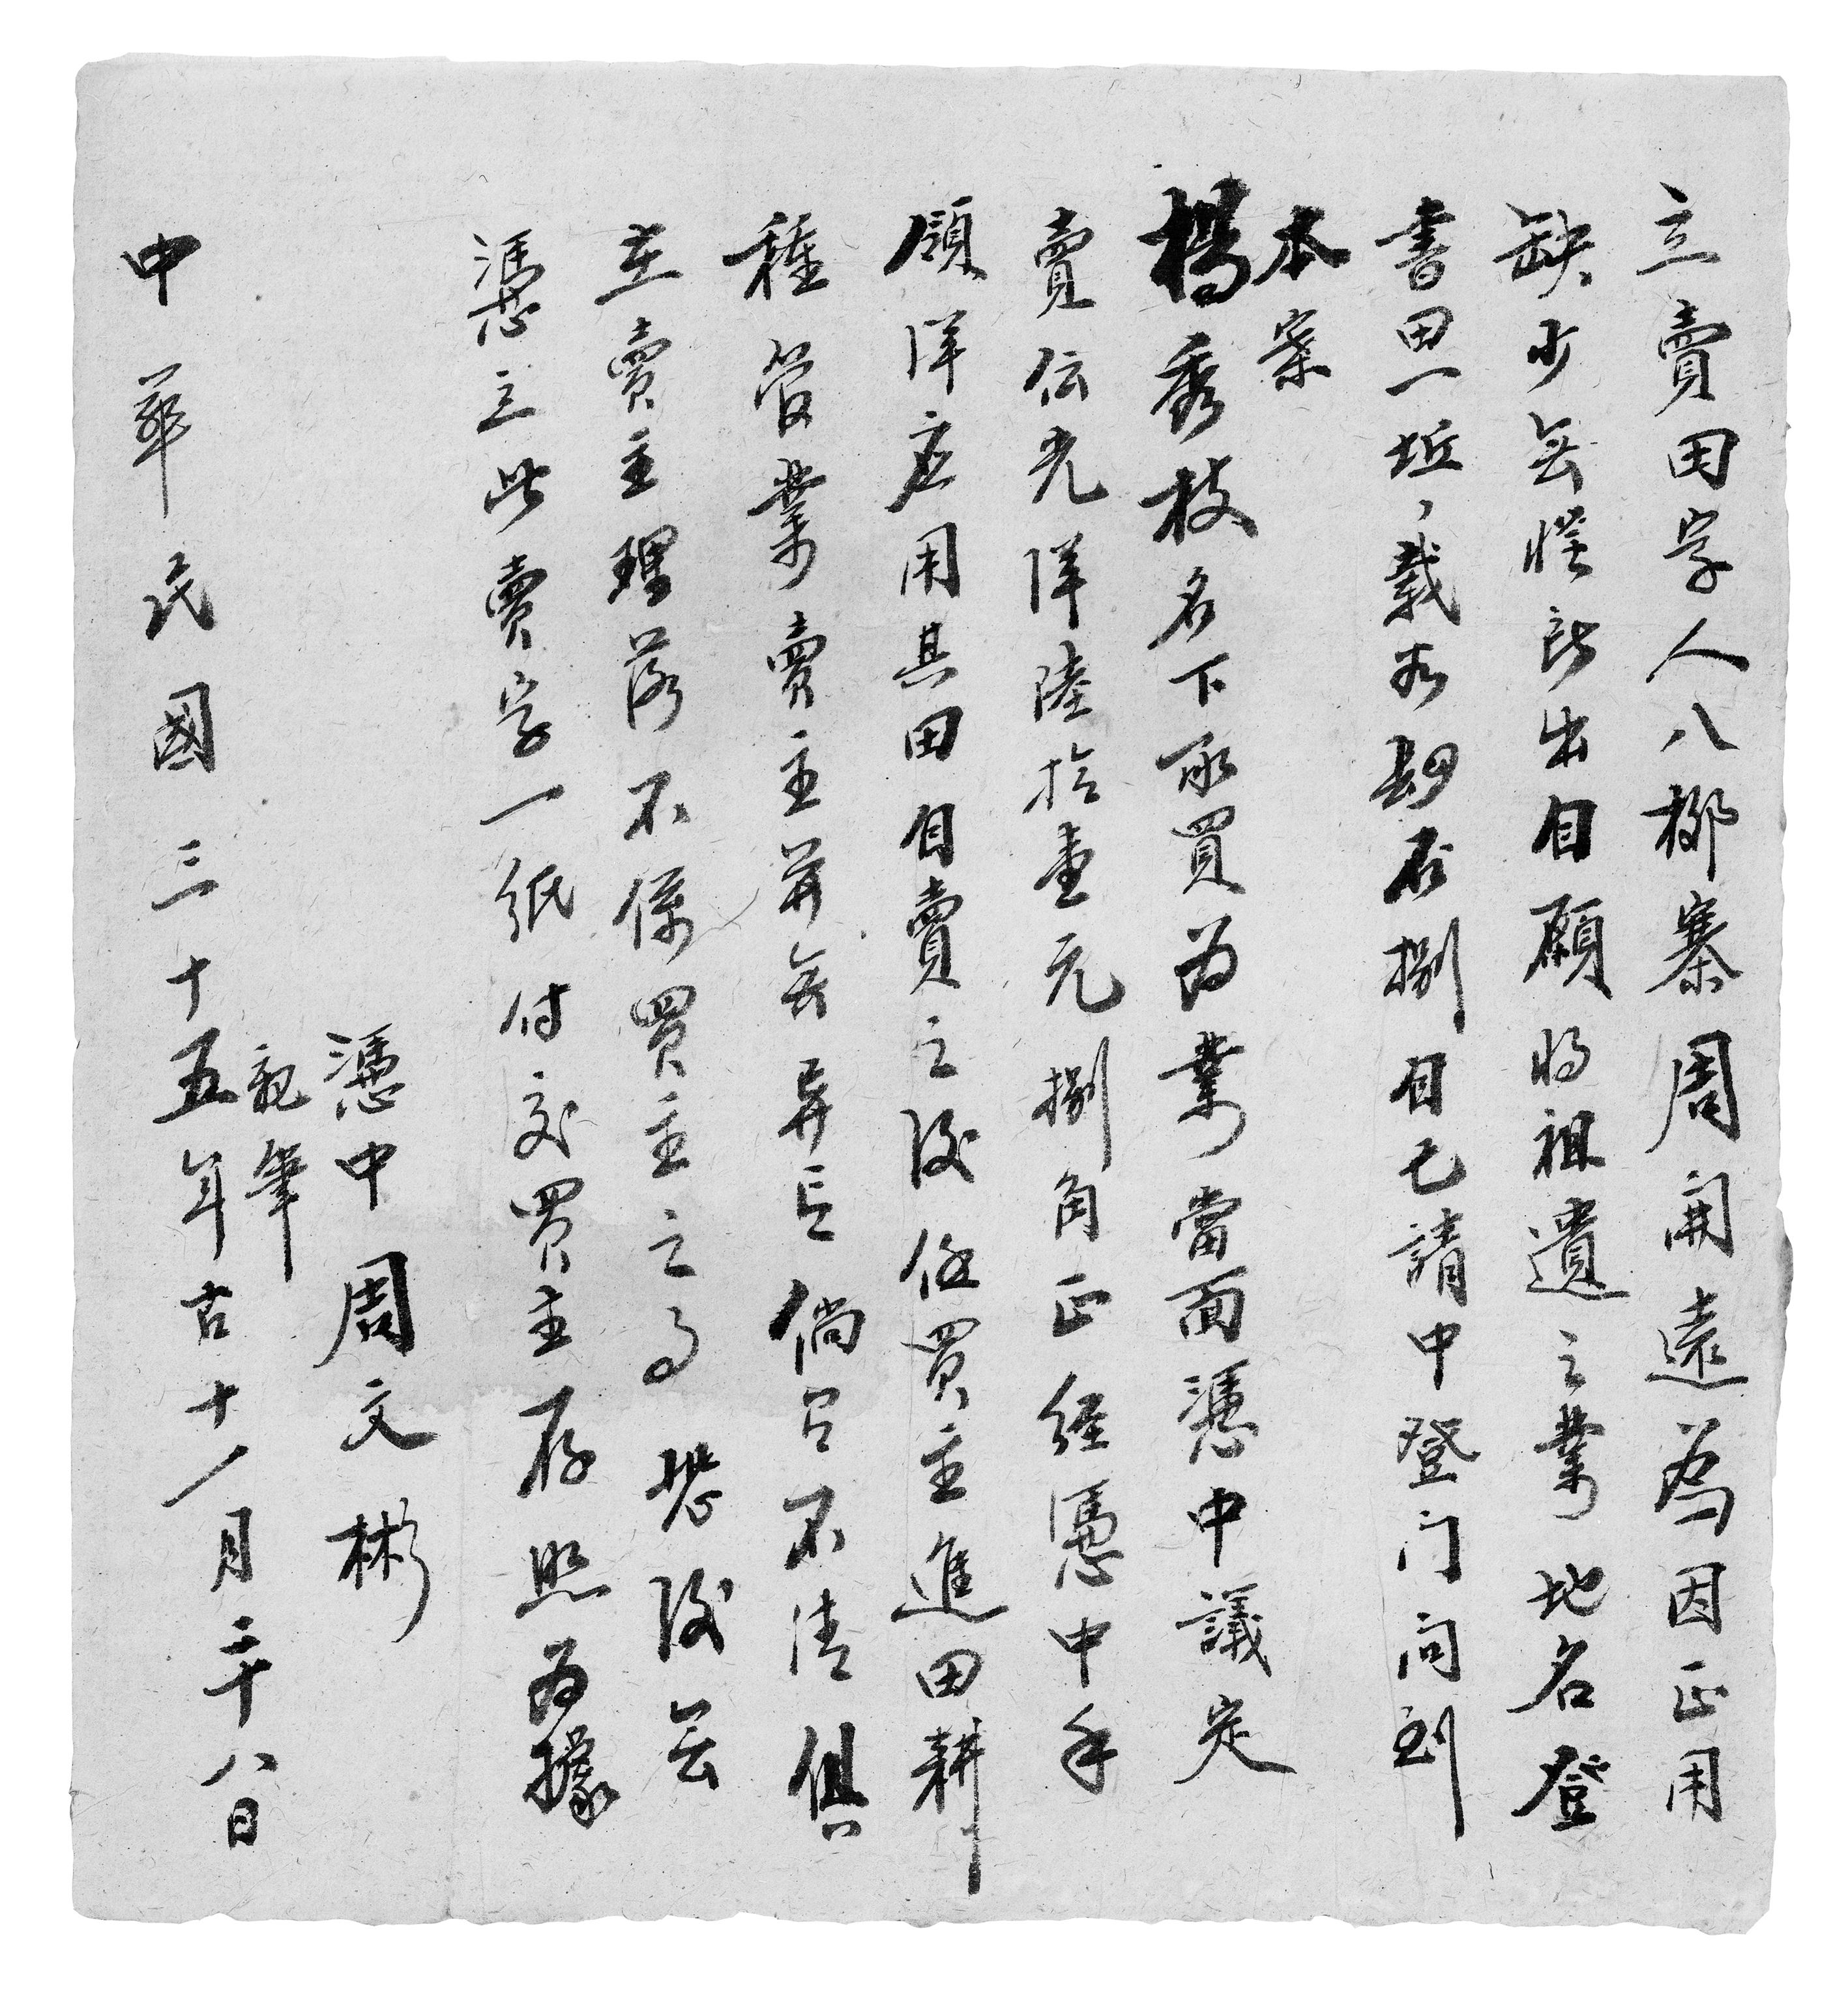 立賣田字人八梛寨周開遠為因正用
缺少無慌所出自願將祖遺之業地名登
書田一坵、載禾胡石捌自己請中登门问到
本寨
楊秀枝名下承買为業當面憑中議定
賣伝光洋陸拾壹元捌角正経憑中手
領洋应用其田自賣之後任買主進田耕
種管業賣主并無異言倘若不清俱
在賣主理落不係買主之事恐後無
憑立此賣字一紙付交買主存照为據
憑中周文彬
親筆
中華民國三十五年古十一月二十八日